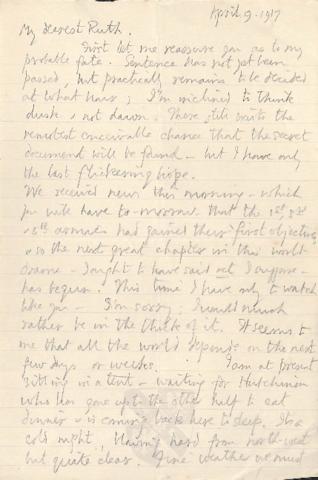 April 9. 1917
My dearest Ruth.
First let me reassure you as to my
probable fate. Sentence has not yet been
passed, but practically remains to be decided
at what hour; I'm inclined to think
dusk, not dawn. There still exists the
remotest conceivable chance that the secret
document will be found - but I have only
the last flickering hope.
We received news this morning - which
you will have to-morrow that the 1st 3rd
& 5th armies had gained their first objectives
& so the next great chapter in this world
drama - I ought to have said act I suppose -
has begun. This time I have only to watch
like you - I'm sorry; I would much
rather be in the thick of it. It seems to
me that all the world depends on the next
few days or weeks. I am at present
sitting in a tent - waiting for Hutchinson
who has gone up to the other half to eat
dinner & is coming back here to sleep. It's a
cold night, blowing hard from north-west
but quite clear. Fine weather we must